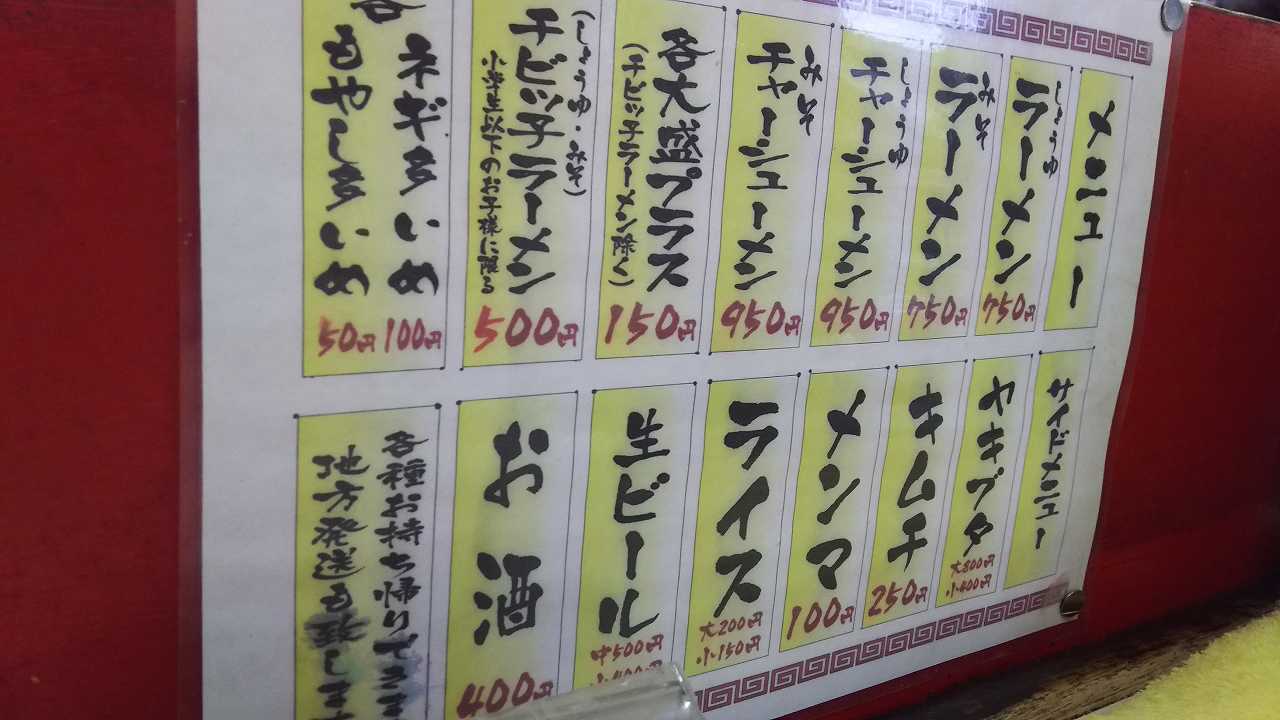 メニュー
しょうゆ
ラーメン
750円
みそ
ラーメン
750円
しょうゆ
チャーシューメン
950円
みそ
チャーシューメン
950円
各大盛プラス
(チビッ子ラーメン除く)
150円
(しょうゆ・みそ)
チビッ子ラーメン
小学生以下のお子様に限る
500円
各
ネギ多いめ
100円
もやし多いめ
50円
サイドメニュー
ヤキブタ
大800円
小400円
キムチ
250円
メンマ
100円
ライス
大200円
小150円
生ビール
中500円
小400円
お酒
400円
各種お持ち帰りできま
地方発送も致しま